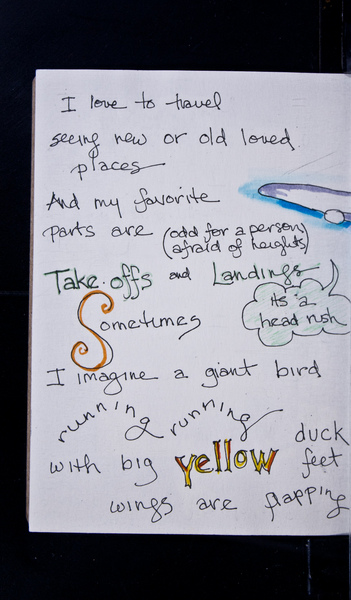 I love to travel
seeing new or old loved
places
And my favorite
parts are (odd for a person
afraid of heights)
Take.offs and Landings
its a
head rush
Sometimes
I imagine a giant bird
running running
duck
with big yellow feet
wings are flapping